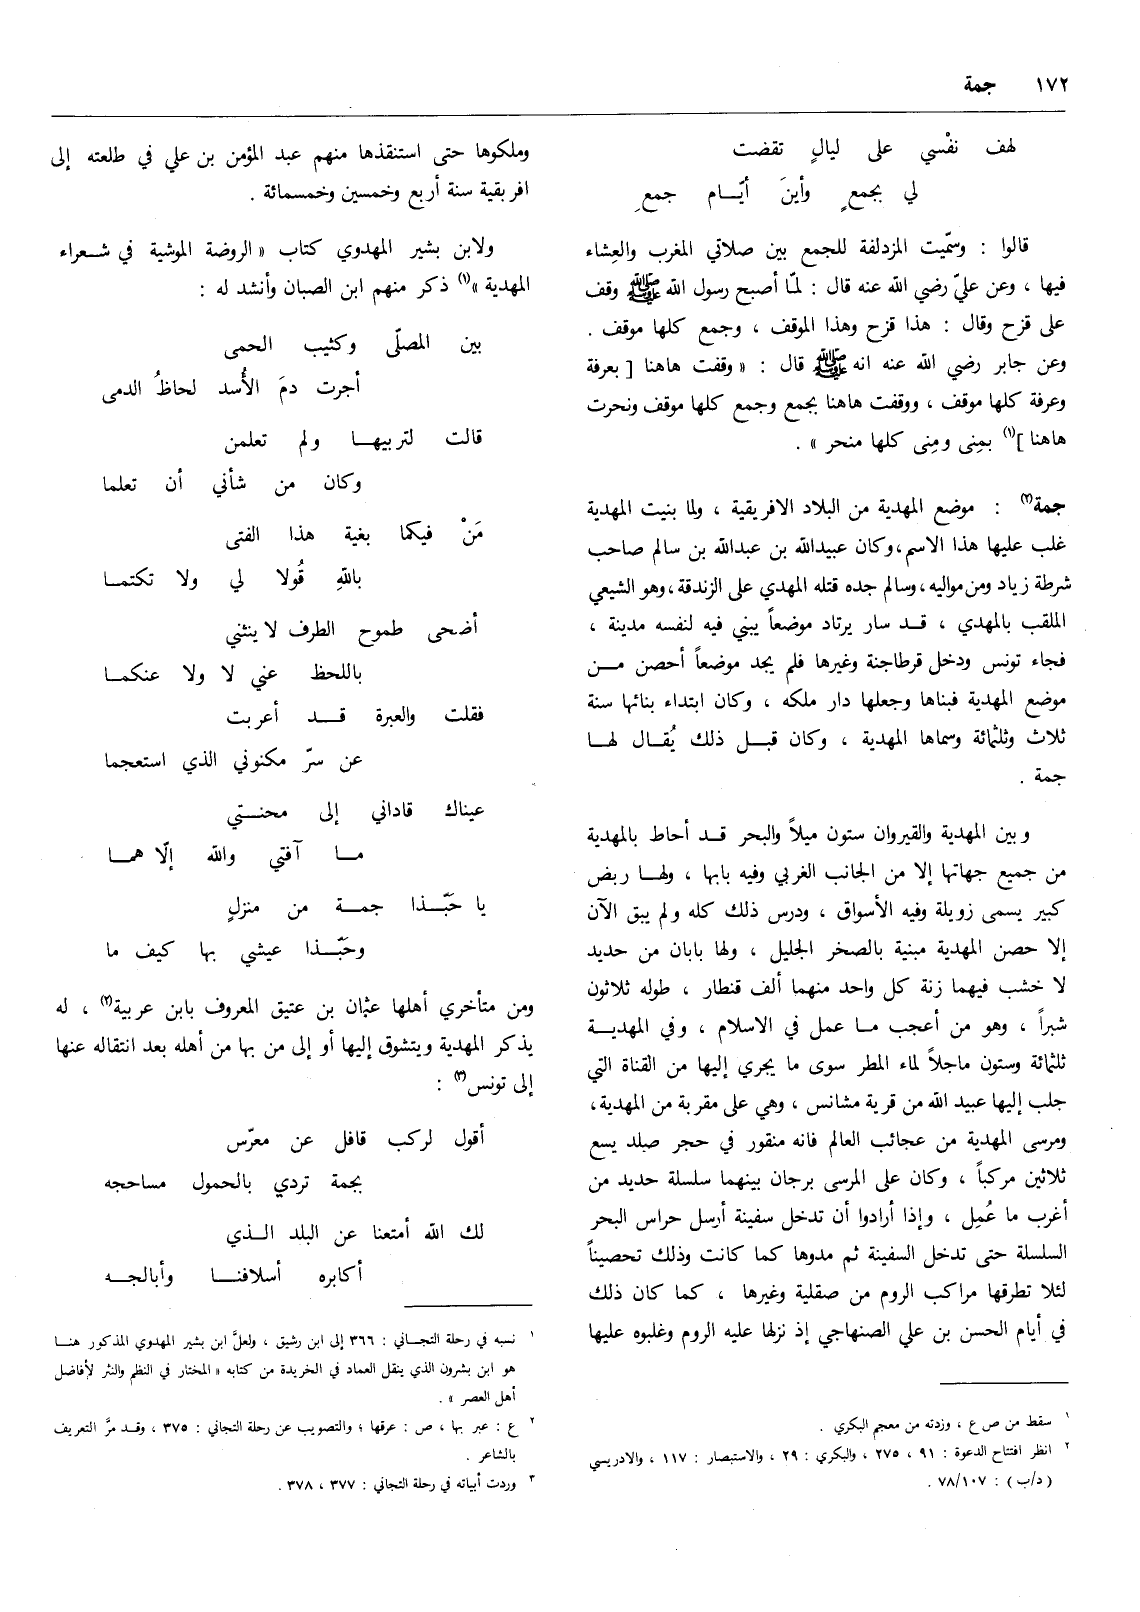 ١٧٢ جمة
لهف نفْسي على ليالٍ تقضت
لي بجمعٍ وأينَ أيّام جمعِ
قالوا : وسمّيت المزدلفة للجمع بين صلاتي المغرب والعِشاء
فيها ، وعن عليّ رضي الله عنه قال : لمّا أصبح رسول الله ﷺ وقف
على قزح وقال : هذا قزح وهذا الموقف ، وجمع كلها موقف .
وعن جابر رضي الله عنه انه ﷺ قال : « وقفت هاهنا [ بعرفة
وعرفة كلها موقف ، ووقفت هاهنا بجمع وجمع كلها موقف ونحرت
هاهنا ](١) بمِنى ومِنى كلها منحر » .
جمة(٢) : موضع المهدية من البلاد الافريقية ، ولما بنيت المهدية
غلب عليها هذا الاسم، وكان عبيدالله بن عبدالله بن سالم صاحب
شرطة زياد ومن مواليه، وسالم جده قتله المهدي على الزندقة، وهو الشيعي
الملقب بالمهدي ، قد سار يرتاد موضعاً يبني فيه لنفسه مدينة ،
فجاء تونس ودخل قرطاجنة وغيرها فلم يجد موضعاً أحصن من
موضع المهدية فبناها وجعلها دار ملكه ، وكان ابتداء بنائها سنة
ثلاث وثلثمائة وسماها المهدية ، وكان قبل ذلك يُقال لها
جمة .
وبين المهدية والقيروان ستون ميلاً والبحر قد أحاط بالمهدية
من جميع جهاتها إلا من الجانب الغربي وفيه بابها ، ولها ربض
كبير يسمى زويلة وفيه الأسواق ، ودرس ذلك كله ولم يبق الآن
إلا حصن المهدية مبنية بالصخر الجليل ، ولها بابان من حديد
لا خشب فيهما زنة كل واحد منهما ألف قنطار ، طوله ثلاثون
شبراً ، وهو من أعجب ما عمل في الاسلام ، وفي المهدية
ثلثمائة وستون ماجلاً لماء المطر سوى ما يجري إليها من القناة التي
جلب إليها عبيد الله من قرية مشانس ، وهي على مقربة من المهدية،
ومرسى المهدية من عجائب العالم فانه منقور في حجر صلد يسع
ثلاثين مركباً ، وكان على المرسى برجان بينهما سلسلة حديد من
أغرب ما عُمِل ، وإذا أرادوا أن تدخل سفينة أرسل حراس البحر
السلسلة حتى تدخل السفينة ثم مدوها كما كانت وذلك تحصيناً
لئلا تطرقها مراكب الروم من صقلية وغيرها ، كما كان ذلك
في أيام الحسن بن علي الصنهاجي إذ نزلها عليه الروم وغلبوه عليها
١ سقط من ص ع ، وزدته من معجم البكري .
٢ انظر افتتاح الدعوة : ٩١ ، ٢٧٥ ، والبكري : ٢٩ ، والاستبصار : ١١٧ ، والادريسي
( د/ب ) : ٧٨/١٠٧ .
وملكوها حتى استنقذها منهم عبد المؤمن بن علي في طلعته إلى
افريقية سنة أربع وخمسين وخمسمائة .
ولابن بشير المهدوي كتاب « الروضة الموشية في شعراء
المهدية »(١) ذكر منهم ابن الصبان وأنشد له :
بين المصلّى وكثيب الحمى
أجرت دمَ الأُسد لحاظُ الدمى
قالت لتربيها ولم تعلمن
وكان من شأني أن تعلما
مَنْ فيكما بغية هذا الفتى
باللهِ قُولا لي ولا تكتما
أضحى طموح الطرف لا ينثني
باللحظ عني لا ولا عنكما
فقلت والعبرة قد أعربت
عن سرّ مكنوني الذي استعجما
عيناك قاداني إلى محنتي
ما آفتي والله إلّا هما
يا حَبّذا جمة من منزلٍ
وحَبّذا عيشي بها كيف ما
ومن متأخري أهلها عثمان بن عتيق المعروف بابن عربية(٢) ، له
يذكر المهدية ويتشوق إليها أو إلى من بها من أهله بعد انتقاله عنها
إلى تونس(٣) :
أقول لركب قافل عن معرّس
بجمة تردي بالحمول مساحجه
لك الله أمتعنا عن البلد الذي
أكابره أسلافنا وأبالجه
١ نسبه في رحلة التجاني : ٣٦٦ إلى ابن رشيق ، ولعلّ ابن بشير المهدوي المذكور هنا
هو ابن بشرون الذي ينقل العماد في الخريدة من كتابه « المختار في النظم والنثر لأفاضل
أهل العصر » .
٢ ع : عبر بها ، ص : عرقها ؛ والتصويب عن رحلة التجاني : ٣٧٥ ، وقد مرّ التعريف
بالشاعر .
٣ وردت أبياته في رحلة التجاني : ٣٧٧ ، ٣٧٨ .